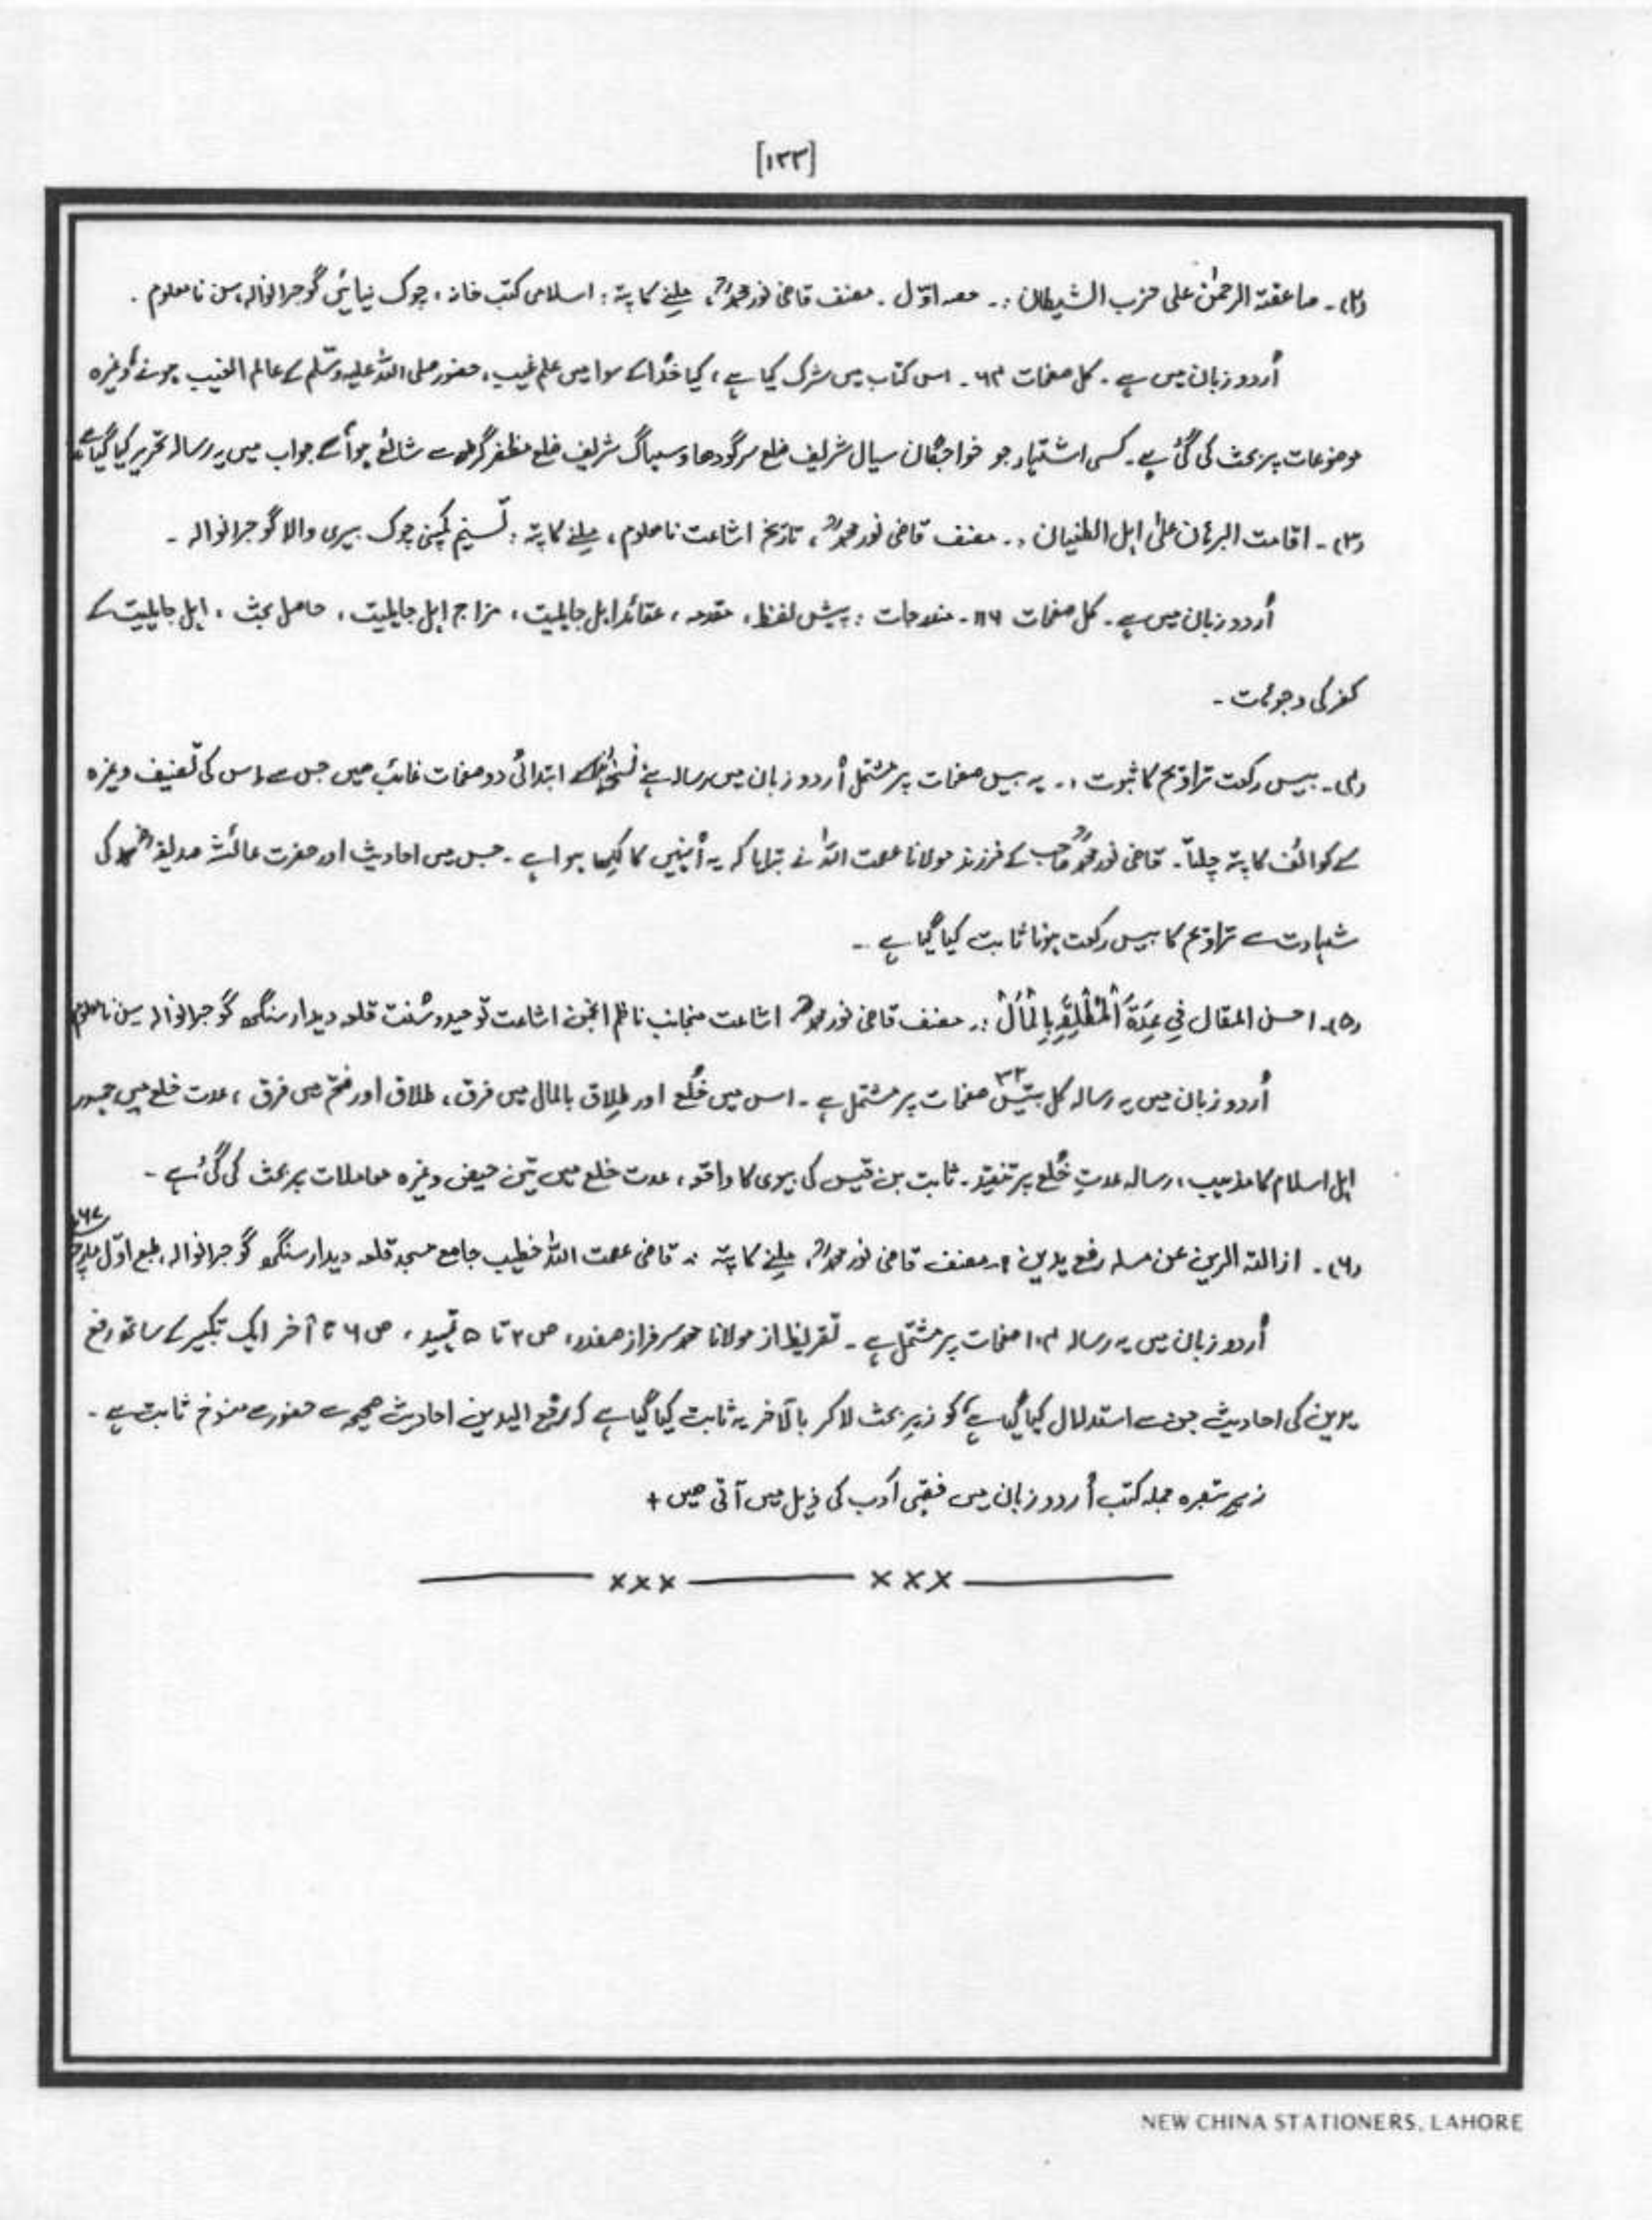 [۱۳۳]
(۲)۔ صاعقۃ الرحمٰن علی حزب الشیطان :۔ حصہ اوّل ۔ مصنف قاضی نور محمدؒ، ملنے کا پتہ : اسلامی کتب خانہ ، چوک نیائیں گوجرانوالہ، سن نامعلوم ۔
اُردو زبان میں ہے ۔ کل صفحات ۶۴ ۔ اس کتاب میں شرک کیا ہے ، کیا خُدا کے سوا میں علم غیب ، حضور صلی اللہ علیہ وسلّم کے عالم الغیب ہونے وغیرہ
موضوعات پر بحث کی گئی ہے ۔ کسی اشتہار جو خواجگان سیال شریف ضلع سرگودھا و سیواگ شریف ضلع مظفرگڑھ سے شائع ہوا کے جواب میں یہ رسالہ تحریر کیا گیا ہے
(۳)۔ اقامت البرہان علیٰ اہل الطغیان :۔ مصنف قاضی نور محمدؒ ، تاریخ اشاعت نامعلوم ، ملنے کا پتہ : تسنیم کمپنی چوک بیری والا گوجرانوالہ ۔
اُردو زبان میں ہے ۔ کل صفحات ۱۱۶ ۔ مندرجات : پیش لفظ ، مقدمہ ، عقائد اہل جاہلیت ، مزاج اہل جاہلیت ، حاصل بحث ، اہل جاہلیت کے
کفر کی وجوہات ۔
(۴)۔ بیس رکعت تراویح کا ثبوت :۔ یہ بیس صفحات پر مشتمل اُردو زبان میں رسالہ ہے ابتدائی دو صفحات غائب ہیں جس سے اس کی تصنیف وغیرہ
کے کوائف کا پتہ چلتا ۔ قاضی نور محمدؒ صاحب کے فرزند مولانا عصمت اللہ نے بتایا کہ یہ اُنہیں کا لکھا ہوا ہے ۔ جس میں احادیث اور حضرت عائشہ صدیقہؓ کی
شہادت سے تراویح کا بیس رکعت ہونا ثابت کیا گیا ہے ۔
(۵)۔ احسن المقال فِي عِدَّةِ الْمُطَلَّقَةِ بِالْمَالْ :۔ مصنف قاضی نور محمدؒ اشاعت منجانب ناظم انجمن اشاعت توحید و سُنت قلعہ دیدار سنگھ گوجرانوالہ سن نامعلوم
اُردو زبان میں یہ رسالہ کل بتیس ۳۲ صفحات پر مشتمل ہے ۔ اس میں خُلع اور طلاق بالمال میں فرق ، طلاق اور فسخ میں فرق ، عدت خلع میں جمہور
اہل اسلام کا مذہب ، رسالہ عدتِ خُلع پر تنقید ۔ ثابت بن قیس کی بیوی کا واقعہ ، عدت خلع میں تین حیض وغیرہ معاملات پر بحث کی گئی ہے ۔
(۶)۔ ازالتہ الرین عن مسلہ رفع یدین :۔ مصنف قاضی نور محمدؒ ، ملنے کا پتہ :۔ قاضی عصمت اللہ خطیب جامع مسجد قلعہ دیدار سنگھ گوجرانوالہ ، طبع اوّل
اُردو زبان میں یہ رسالہ ۱۰۴ صفحات پر مشتمل ہے ۔ تقریظ از مولانا محمد سرفراز صفدر ، ص ۲ تا ۵ تمہید ، ص ۶ تا آخر ایک تکبیر کے ساتھ رفع
یدین کی احادیث جن سے استدلال کیا گیا ہے کو زیر بحث لا کر بالآخر یہ ثابت کیا گیا ہے کہ رفع الیدین احادیث صحیحہ سے حضور سے منسوخ ثابت ہے ۔
زیر تبصرہ جملہ کتب اُردو زبان میں فقہی اَدب کی ذیل میں آتی ہیں +
××× ×××
NEW CHINA STATIONERS, LAHORE